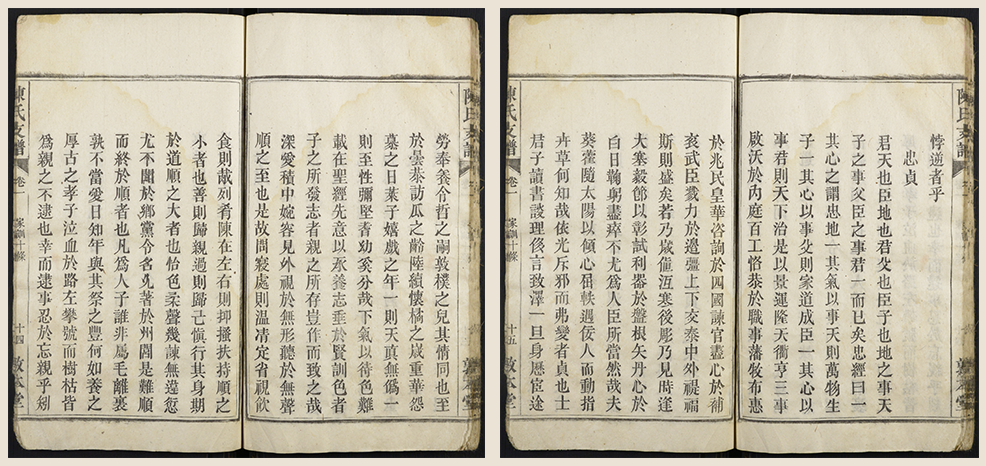 勞奉養令哲之嗣裘樸之兒其情同也至
於曇恭訪瓜之齡陸績懷橘之歲重華怨
墓之日萊子嬉戲之年一則天真無僞一
則至性彌堅耆幼奚分哉下氣以待色難
載在聖經先意以承養志垂於賢訓色者
子之所發志者親之所存豈作而致之哉
深愛積中婉容見外視於無形聽於無聲
順之至也是故問寢處則温凊定省視飲
食則胾列肴陳在左右則抑搔扶持順之
小者也善則歸親過則歸己愼行其身期
於道順之大者也怡色柔聲幾諫無違愆
尤不聞於鄉黨令名見著於州閭是難順
而終於順者也凡爲人子誰非屬毛離裏
孰不當愛日知年與其祭之豐何如養之
厚古之孝子泣血於路左攀號而樹枯皆
爲親之不逮也幸而逮事忍於忘親乎剜
陳氏支譜 卷一 家訓十條 十四 敦本堂
悖逆者乎
忠貞
君天也臣地也君父也臣子也地之事天
子之事父臣之事君一而已矣忠經曰一
其心之謂忠地一其氣以事天則萬物生
子一其心以事父則家道成臣一其心以
事君則天下治是以景運隆天衢亨三事
啟沃於內庭百工恪恭於職事藩牧布惠
於兆民皇華咨詢於四國諫官盡心於補
衮武臣戮力於邊疆上下交泰中外禔福
斯則盛矣若乃歲沍寒後彫乃見時逢
大蹇毅節以彰試利器於盤根矢丹心於
白日鞠躬盡瘁不尤爲人臣所當然哉夫
葵藿隨太陽以傾心屈軼遇佞人而動指
卉草何知哉依光斥邪而弗變者貞也士
君子讀書談理侈言致澤一旦身歷宦途
陳氏支譜 卷一 家訓十條 十五 敦本堂